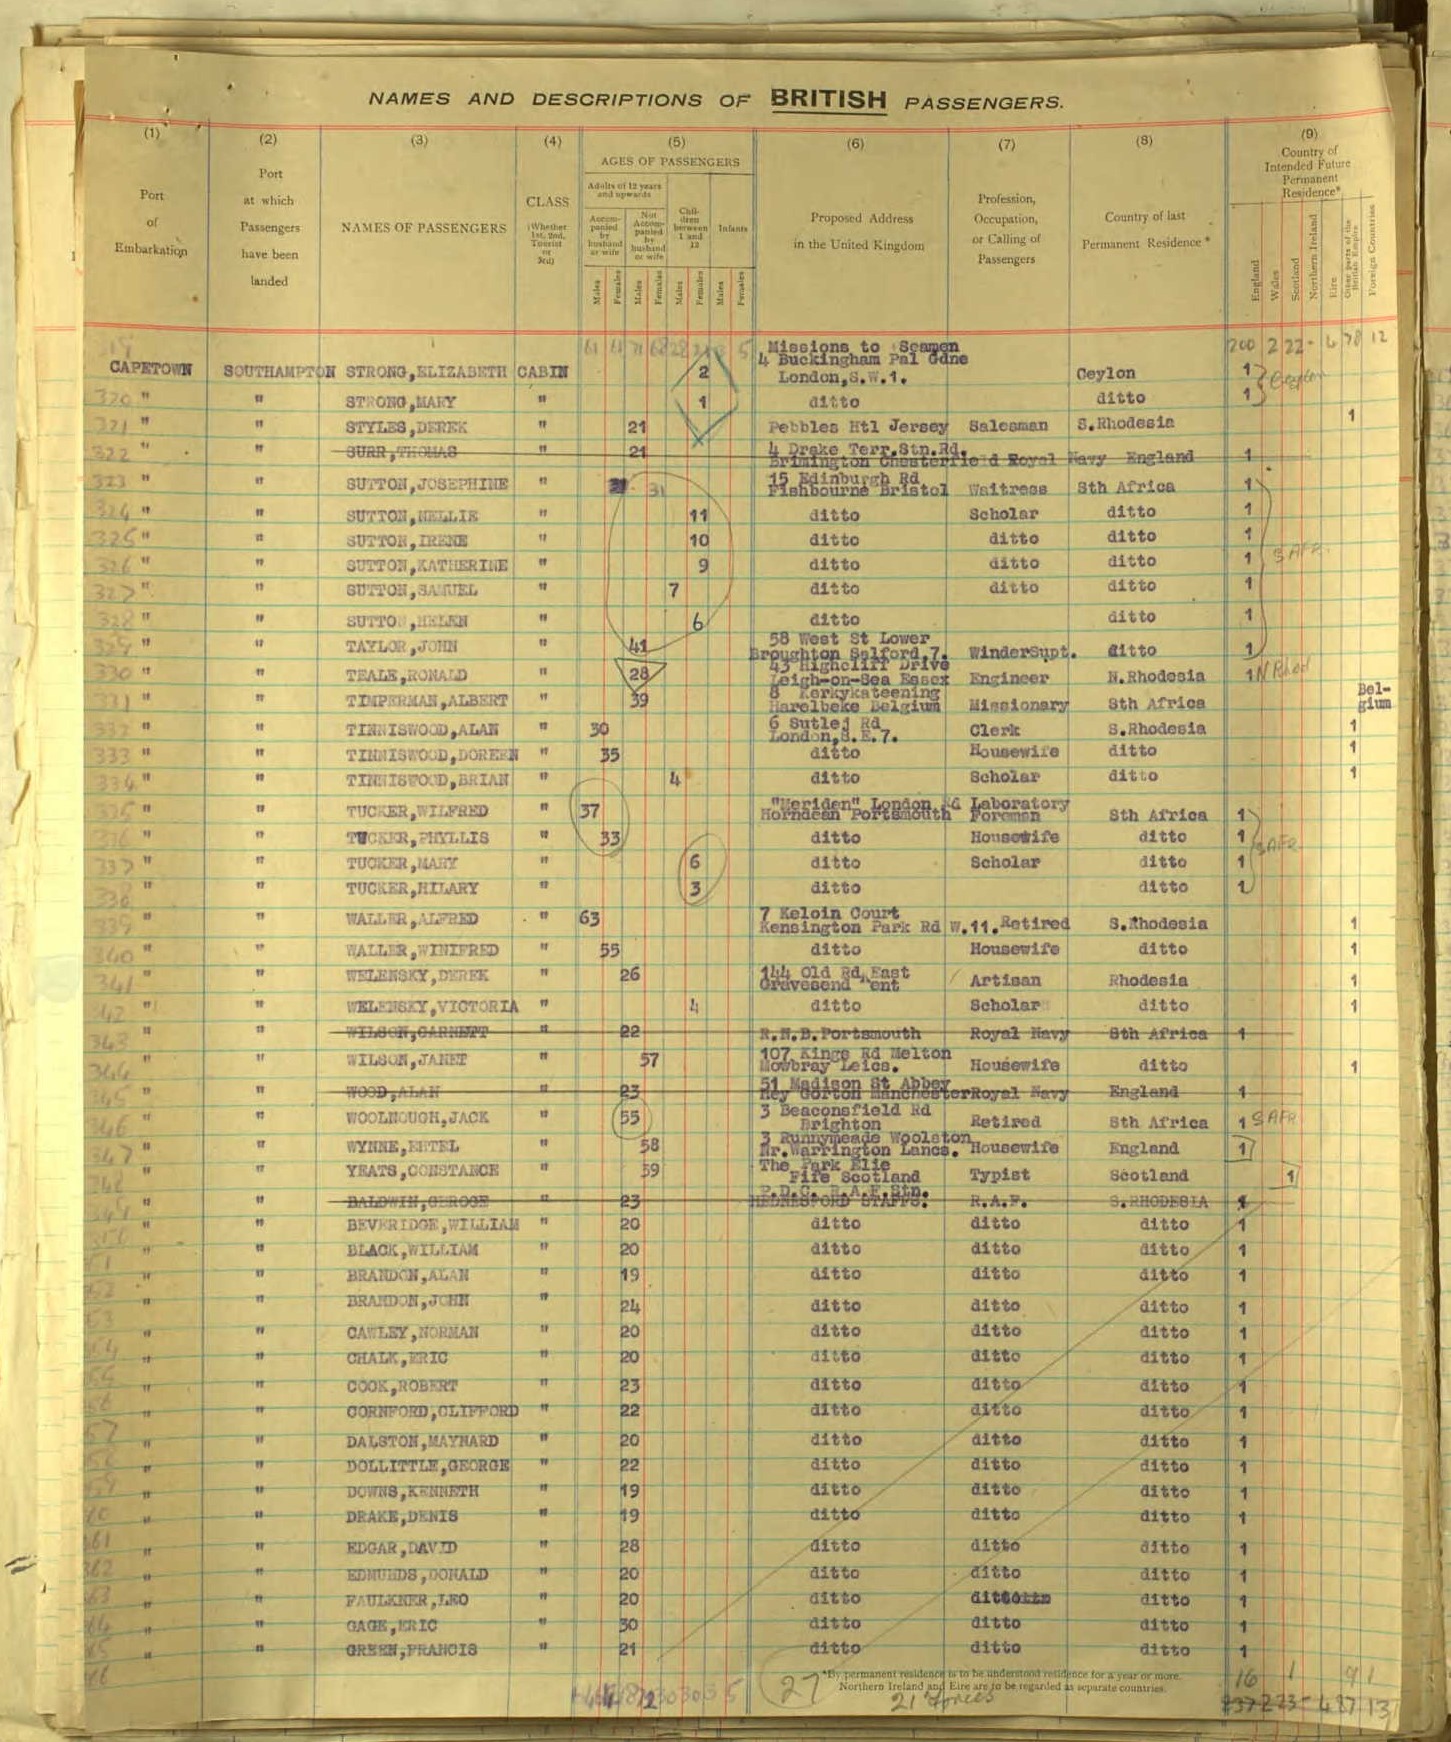 NAMES AND DESCRIPTIONS OF BRITISH PASSENGERS.
(1) (2) (3) (4) (5) (6) (7) (8) (9)
Port of Embarkation
Port at which Passengers have been landed
NAMES OF PASSENGERS
CLASS (Whether 1st, 2nd, Tourist or 3rd)
AGES OF PASSENGERS
Adults of 12 years and upwards
Accompanied by husband or wife
Not Accompanied by husband or wife
Children between 1 and 12
Infants
Males Females Males Females Males Females Males Females
Proposed Address in the United Kingdom
Profession, Occupation, or Calling of Passengers
Country of last Permanent Residence *
Country of Intended Future Permanent Residence*
England Wales Scotland Northern Ireland Eire Other parts of the British Empire Foreign Countries
319 200 2 22 - 4 78 12
Missions to Seamen
4 Buckingham Pal Gdne
CAPETOWN SOUTHAMPTON STRONG,ELIZABETH CABIN 2 London,S.W.1. Ceylon 1 Ceylon
320 " " STRONG,MARY " 1 ditto ditto 1
321 " " STYLES,DEREK " 21 Pebbles Htl Jersey Salesman S.Rhodesia 1
4 Drake Terr.Stn.Rd.
322 " " SURR,THOMAS " 21 Brimington Chesterfield Royal Navy England 1
15 Edinburgh Rd
323 " " SUTTON,JOSEPHINE " 31 Fishbourne Bristol Waitress Sth Africa 1
324 " " SUTTON,NELLIE " 11 ditto Scholar ditto 1
325 " " SUTTON,IRENE " 10 ditto ditto ditto 1
326 " " SUTTON,KATHERINE " 9 ditto ditto ditto 1 S AFR.
327 " " SUTTON,SAMUEL " 7 ditto ditto ditto 1
328 " " SUTTON,HELEN " 6 ditto ditto 1
58 West St Lower
329 " " TAYLOR,JOHN " 41 Broughton Salford,7. WinderSupt. ditto 1
43 Highcliff Drive
330 " " TEALE,RONALD " 28 Leigh-on-Sea Essex Engineer N.Rhodesia 1 N Rhod
8 Kerkykateening Bel-
331 " " TIMPERMAN,ALBERT " 39 Harelbeke Belgium Missionary Sth Africa gium
6 Sutlej Rd
332 " " TINNISWOOD,ALAN " 30 London,S.E.7. Clerk S.Rhodesia 1
333 " " TINNISWOOD,DOREEN " 35 ditto Housewife ditto 1
334 " " TINNISWOOD,BRIAN " 4 ditto Scholar ditto 1
"Meriden" London Rd Laboratory
335 " " TUCKER,WILFRED " 37 Horndean Portsmouth Foreman Sth Africa 1
336 " " TUCKER,PHYLLIS " 33 ditto Housewife ditto 1 S AFR
337 " " TUCKER,MARY " 6 ditto Scholar ditto 1
338 " " TUCKER,HILARY " 3 ditto ditto 1
7 Keloin Court
339 " " WALLER,ALFRED " 63 Kensington Park Rd W.11. Retired S.Rhodesia 1
340 " " WALLER,WINIFRED " 55 ditto Housewife ditto 1
144 Old Rd East
341 " " WELENSKY,DEREK " 26 Gravesend Kent Artisan Rhodesia 1
42 " " WELENSKY,VICTORIA " 4 ditto Scholar ditto 1
343 " " WILSON,GARNETT " 22 R.N.B.Portsmouth Royal Navy Sth Africa 1
107 Kings Rd Melton
344 " " WILSON,JANET " 57 Mowbray Leics. Housewife ditto 1
51 Madison St Abbey
345 " " WOOD,ALAN " 23 Hey Gorton Manchester Royal Navy England 1
3 Beaconsfield Rd
346 " " WOOLNOUGH,JACK " 55 Brighton Retired Sth Africa 1 S AFR
3 Runnymeade Woolston
347 " " WYNNE,ETHEL " 58 Nr.Warrington Lancs. Housewife England 1
The Park Elie
348 " " YEATS,CONSTANCE " 59 Fife Scotland Typist Scotland 1
P.D.C. R.A.F.Stn.
349 " " BALDWIN,GEROGE " 23 HEDNESFORD STAFFS. R.A.F. S.RHODESIA 1
350 " " BEVERIDGE,WILLIAM " 20 ditto ditto ditto 1
51 " " BLACK,WILLIAM " 20 ditto ditto ditto 1
52 " " BRANDON,ALAN " 19 ditto ditto ditto 1
53 " " BRANDON,JOHN " 24 ditto ditto ditto 1
54 " " CAWLEY,NORMAN " 20 ditto ditto ditto 1
55 " " CHALK,ERIC " 20 ditto ditto ditto 1
56 " " COOK,ROBERT " 23 ditto ditto ditto 1
57 " " CORNFORD,CLIFFORD " 22 ditto ditto ditto 1
58 " " DALSTON,MAYNARD " 20 ditto ditto ditto 1
59 " " DOLLITTLE,GEORGE " 22 ditto ditto ditto 1
" " DOWNS,KENNETH " 19 ditto ditto ditto 1
60 " " DRAKE,DENIS " 19 ditto ditto ditto 1
361 " " EDGAR,DAVID " 28 ditto ditto ditto 1
362 " " EDMUNDS,DONALD " 20 ditto ditto ditto 1
363 " " FAULKNER,LEO " 20 ditto ditto 1
364 " " GAGE,ERIC " 30 ditto ditto ditto 1
65 " " GREEN,FRANCIS " 21 ditto ditto ditto 1
27
*By permanent residence is to be understood residence for a year or more.
Northern Ireland and Eire are to be regarded as separate countries.
21 Forces
16 1 9 1
237 2 23 - 4 87 13